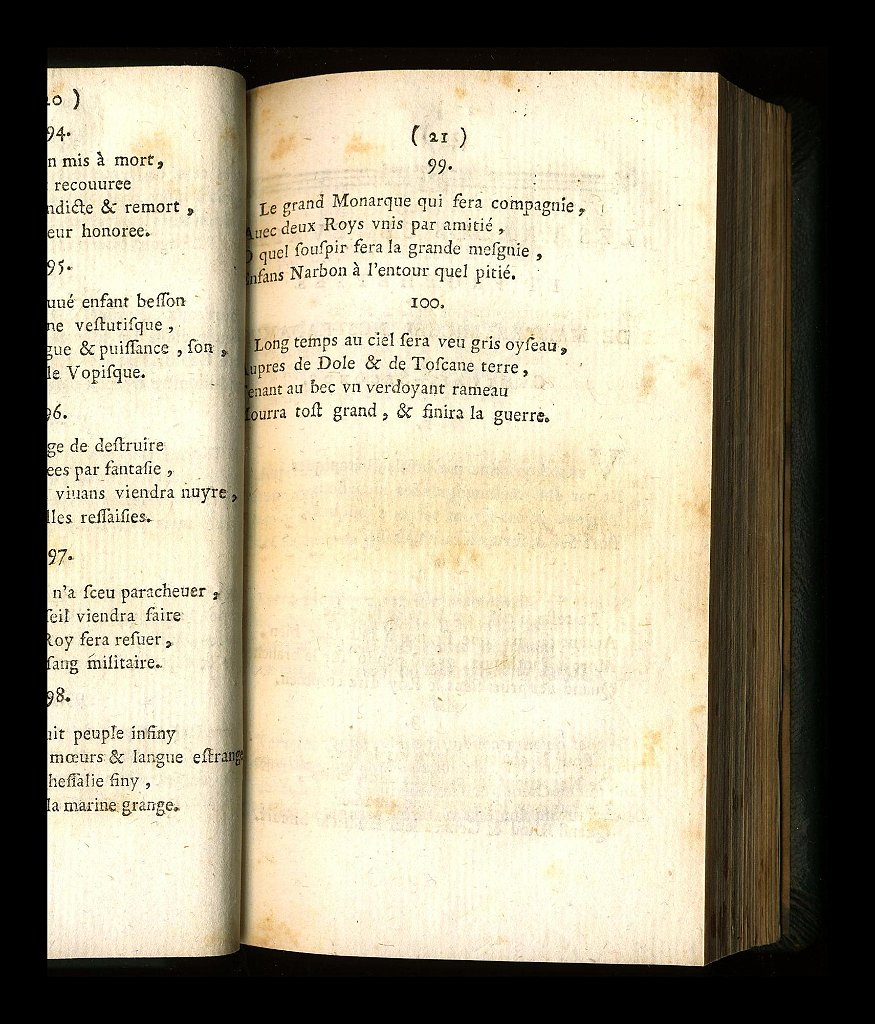 20 )
94.
n mis à mort,
recouuree
ndicte & remort ,
eur honoree.
95.
uué enfant beſſon
ne veſtutiſque ,
gue & puiſſance , ſon ,
le Vopiſque.
96.
ge de deſtruire
ees par fantaſie ,
viuans viendra nuyre,
lles reſſaiſies.
97.
n'a ſceu paracheuer ,
ſeil viendra faire
Roy ſera reſuer ,
ſang militaire.
98.
uit peuple infiny
mœurs & langue eſtrange
heſſalie finy ,
la marine grange.
( 21 )
99.
Le grand Monarque qui ſera compagnie ,
Auec deux Roys vnis par amitié ,
O quel ſouſpir fera la grande meſgnie ,
Enfans Narbon à l'entour quel pitié.
100.
Long temps au ciel ſera veu gris oyſeau,
Aupres de Dole & de Toſcane terre ,
Tenant au bec vn verdoyant rameau
Mourra toſt grand , & finira la guerre.